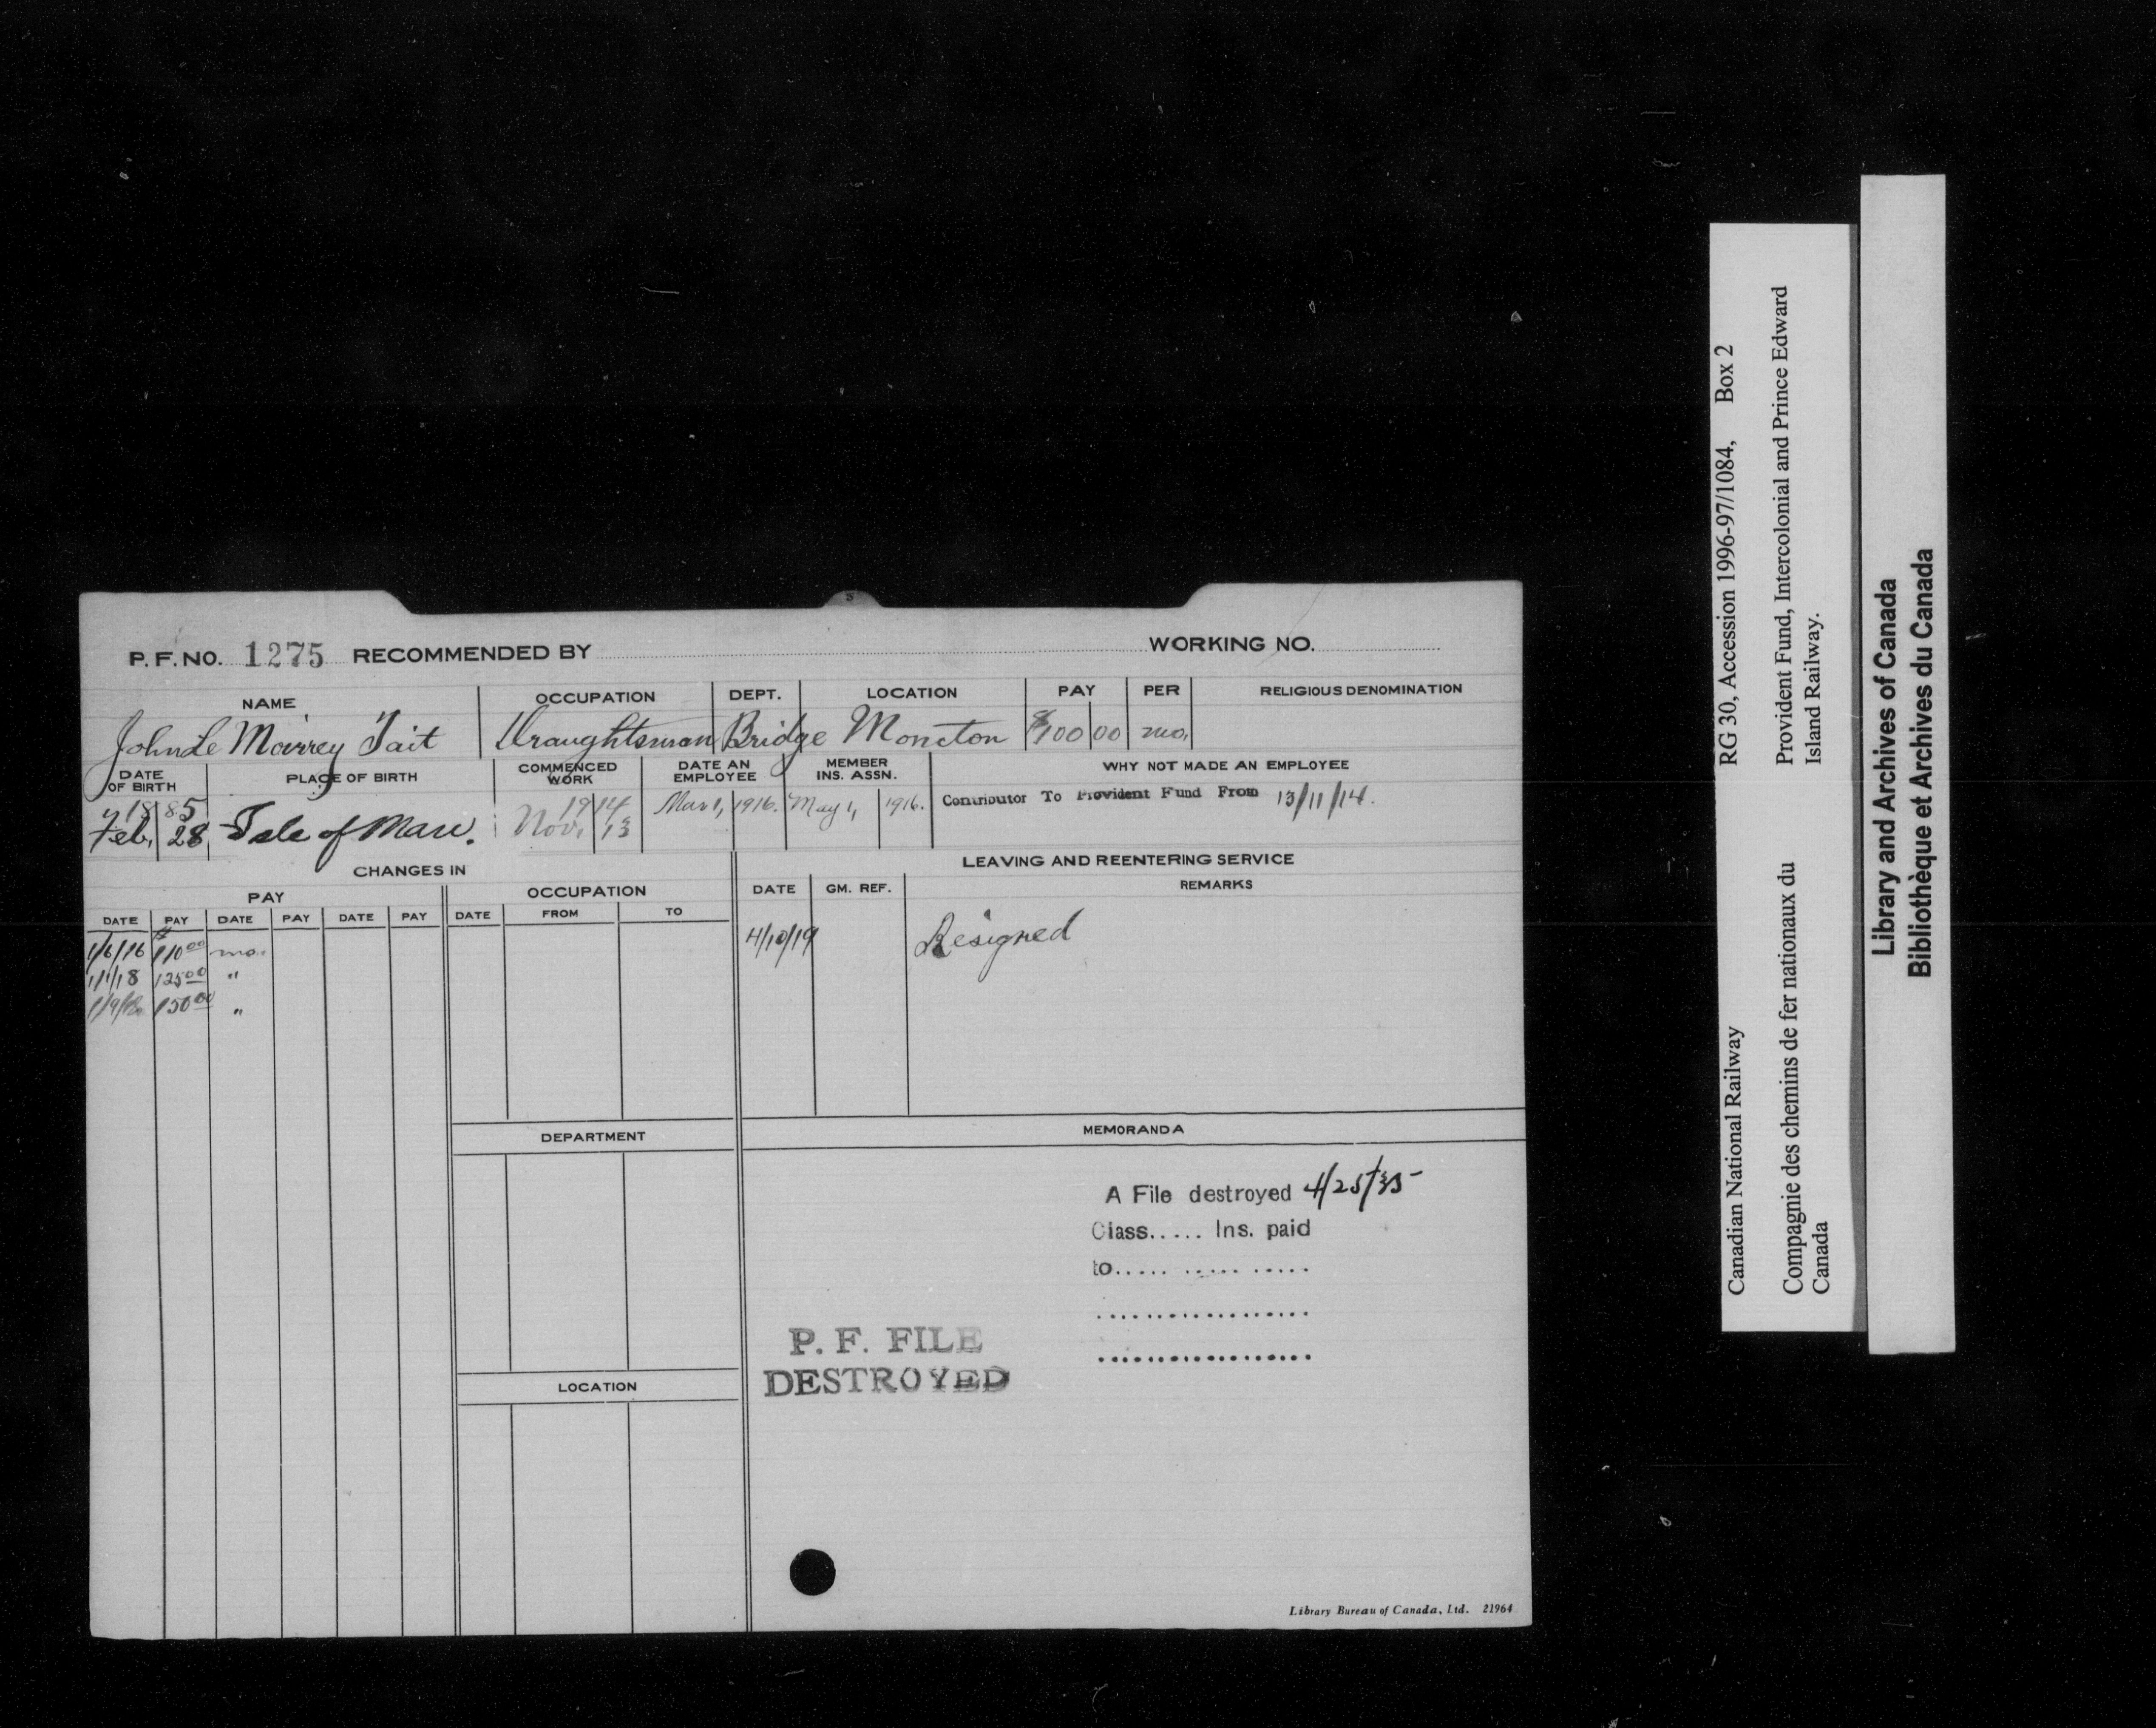 P. F. NO. 1275 RECOMMENDED BY WORKING NO.
NAME OCCUPATION DEPT. LOCATION PAY PER RELIGIOUS DENOMINATION
John Le Mairrey Tait Draughtsman Bridge Moncton $100 00 mo.
DATE OF BIRTH PLACE OF BIRTH COMMENCED WORK DATE AN EMPLOYEE MEMBER INS. ASSN. WHY NOT MADE AN EMPLOYEE
1885 1914 Contributor To Provident Fund From 13/11/14.
Feb. 28 Isle of Man. Nov. 13 Mar 1, 1916. May 1, 1916.
CHANGES IN LEAVING AND REENTERING SERVICE
PAY OCCUPATION DATE GM. REF. REMARKS
DATE PAY DATE PAY DATE PAY DATE FROM TO
1/6/16 $110 00 mo. 4/10/19 Resigned
1/1/18 125 00 "
150 00 "
DEPARTMENT MEMORANDA
A File destroyed 4/25/35
Class..... Ins. paid
to..... ..... .....
P. F. FILE
DESTROYED
LOCATION
Library Bureau of Canada, Ltd. 21964
RG 30, Accession 1996-97/1084, Box 2
Canadian National Railway
Provident Fund, Intercolonial and Prince Edward
Island Railway.
Compagnie des chemins de fer nationaux du
Canada
Library and Archives of Canada
Bibliothèque et Archives du Canada